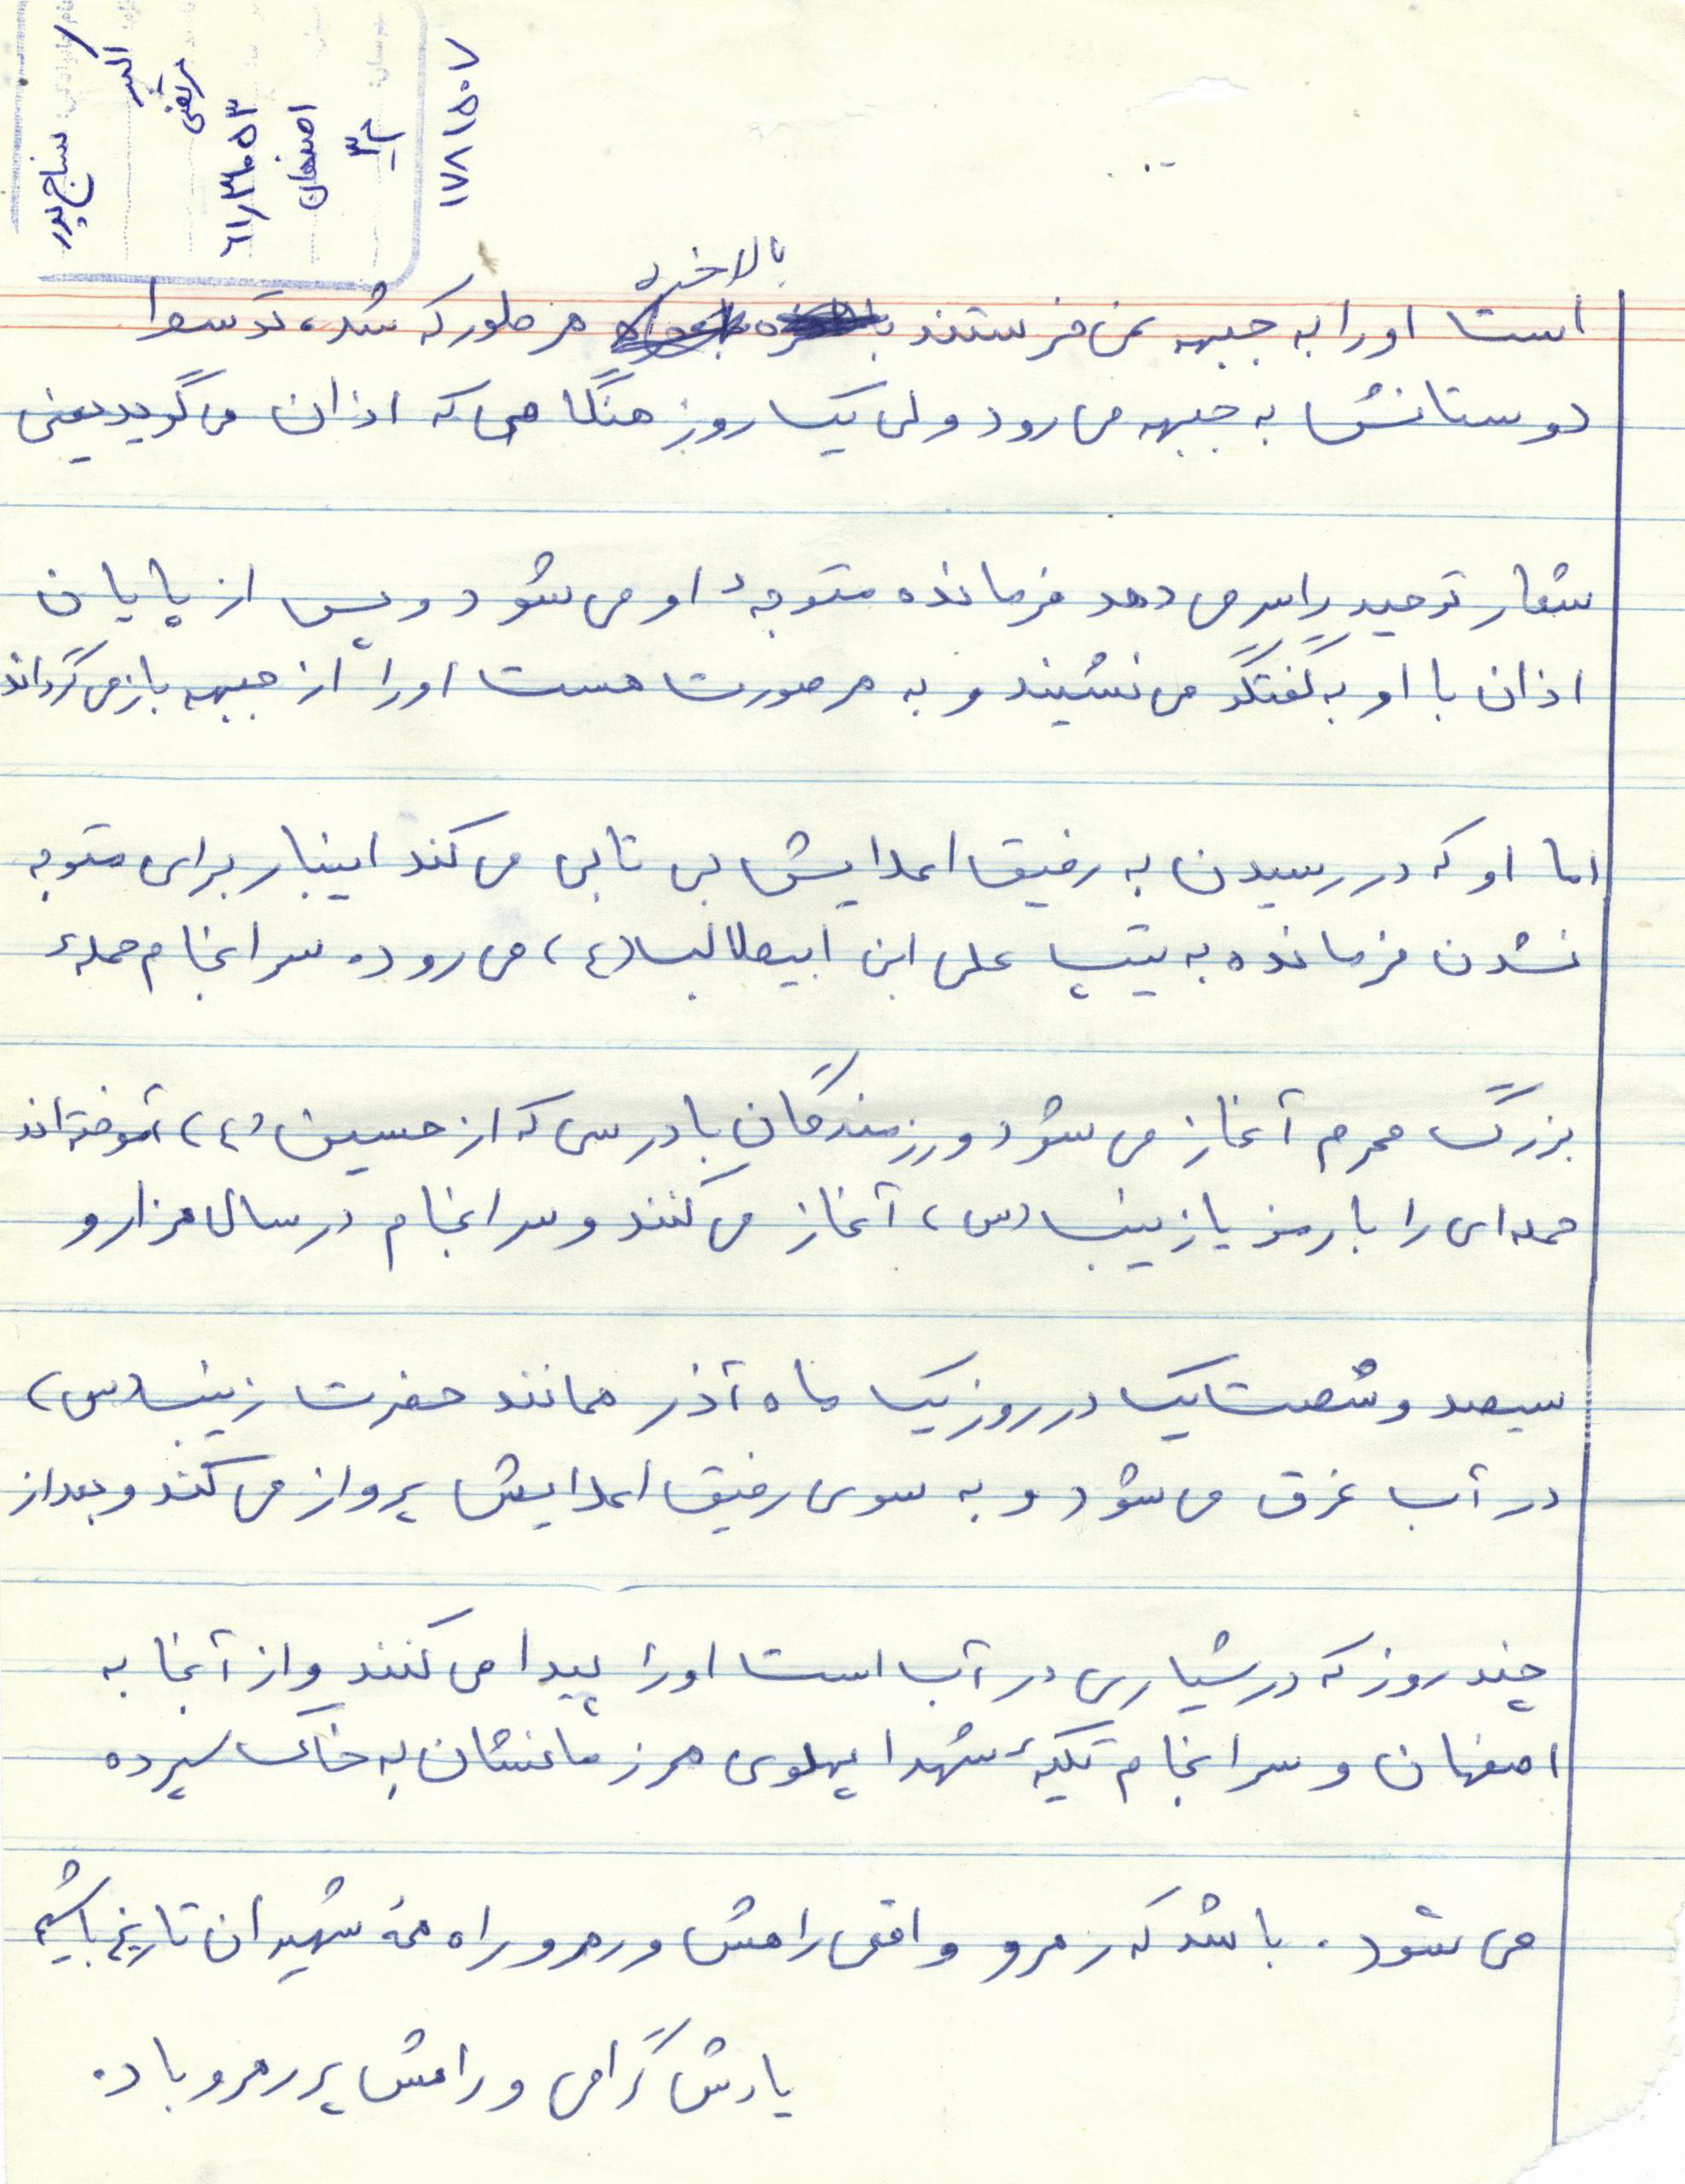 سناج پور
اکبر
مرتضی
اصفهان
۱۷۸۱۵۰۷
بالاخره
است او را به جبهه نمی فرستند هر طور که شد، توسط
دوستانش به جبهه می رود ولی یک روز هنگامی که اذان می گوید یعنی
شعار توحید را سر می دهد فرمانده متوجهٔ او می شود و پس از پایان
اذان با او به گفتگو می نشیند و به هر صورت هست او را از جبهه باز می گرداند
اما او که در رسیدن به رفیق اعلایش بی تابی می کند اینبار برای متوجه
نشدن فرمانده به تیپ علی ابن ابیطالب (ع) می رود. سرانجام حملهٔ
بزرگ محرم آغاز می شود و رزمندگان با درسی که از حسین (ع) آموخته اند
حمله ای را با رمز یا زینب (س) آغاز می کنند و سرانجام در سال هزار و
سیصد و شصت یک در روز یک ماه آذر همانند حضرت زینب (س)
در آب غرق می شود و به سوی رفیق اعلایش پرواز می کند و بعد از
چند روز که در شیاری در آب است او را پیدا می کنند و از آنجا به
اصفهان و سرانجام تکیهٔ شهدا پهلوی همرزمانشان به خاک سپرده
می شود. باشد که رهرو واقعی راهش و رهرو راه همهٔ شهیدان تاریخ باشیم
یادش گرامی و راهش پر رهرو باد.